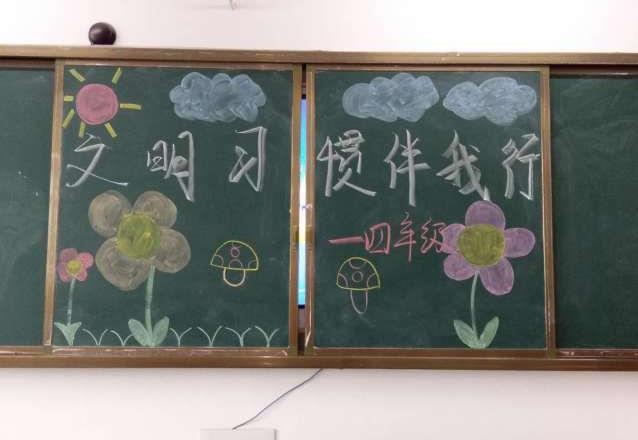 文明习惯伴我行
一四年级